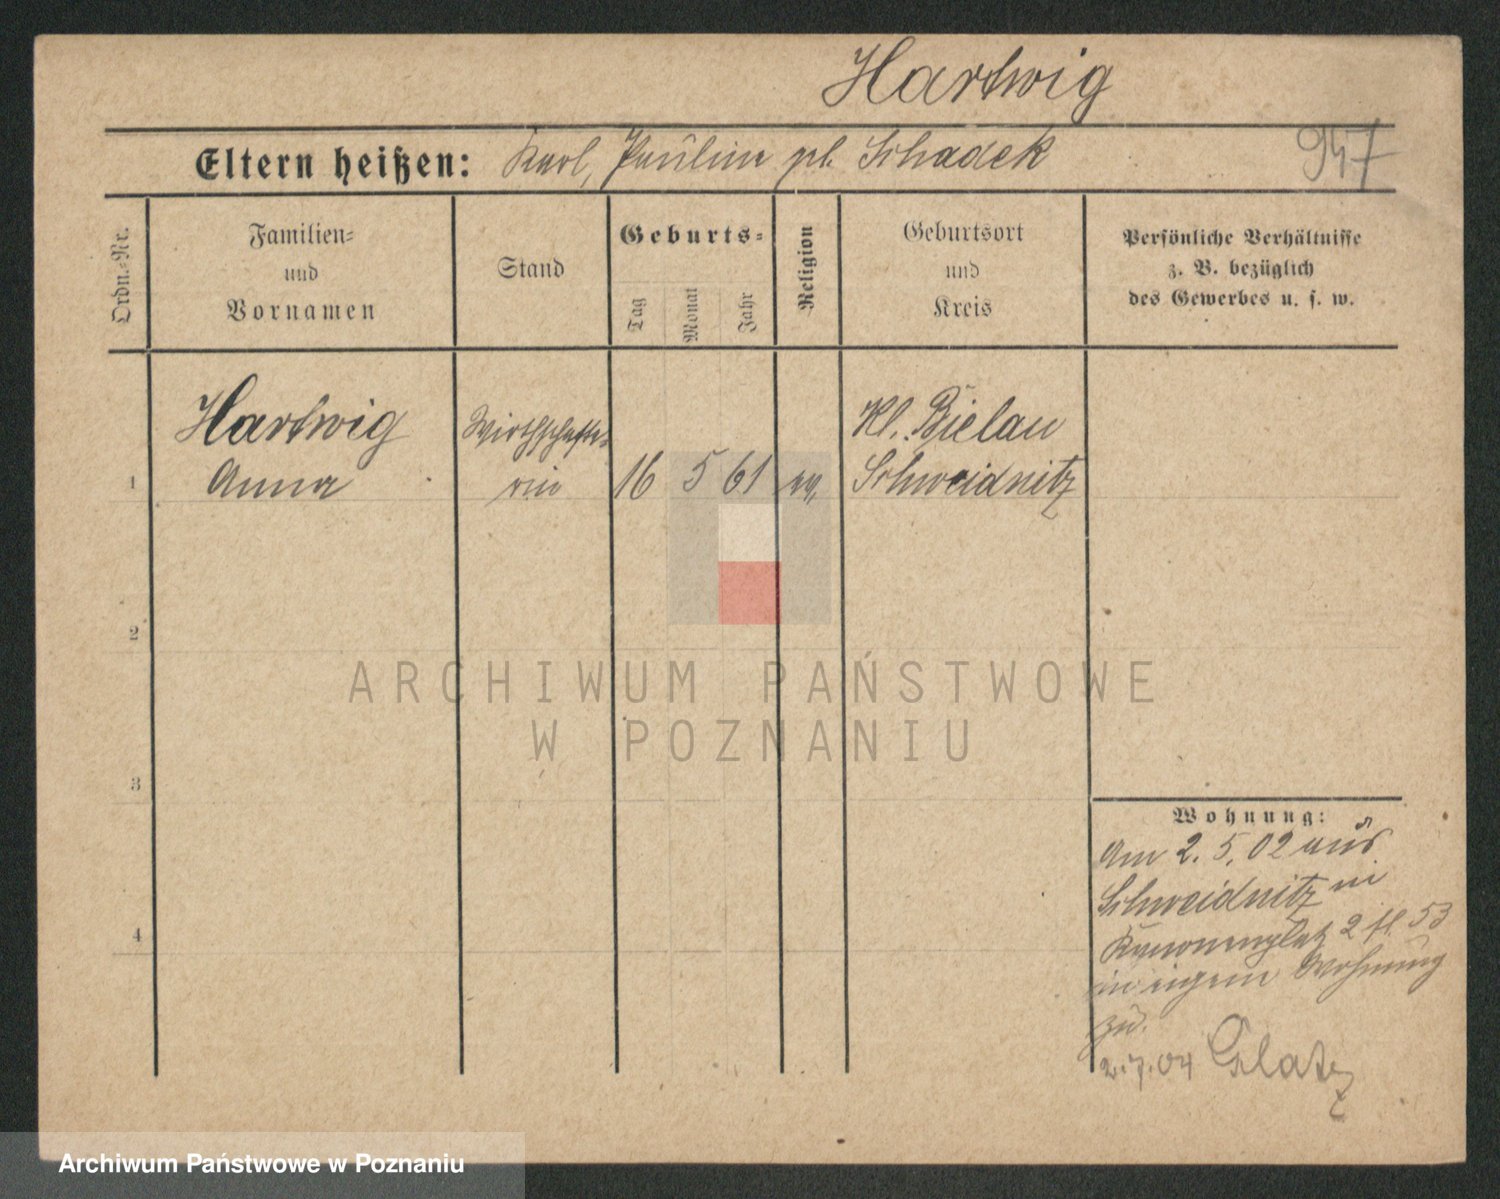 Hartwig
Eltern heißen: Karl, Pauline gb. Schadek
947
Ordn.-Nr.
Familien-
und
Vornamen
Stand
Geburts-
Tag
Monat
Jahr
Religion
Geburtsort
und
Kreis
Persönliche Verhältnisse
z. B. bezüglich
des Gewerbes u. s. w.
1
Hartwig
Anna
Wirthschafte-
rin
16 5 61
ev.
Kl. Bielau
Schweidnitz
2
3
4
Wohnung:
Am 2. 5. 02 aus
Schweidnitz in
Kanonenplatz 2 fl. 53
in eigene Wohnung
zu.
2.7.04 Glatz
ARCHIWUM PAŃSTWOWE
W POZNANIU
Archiwum Państwowe w Poznaniu